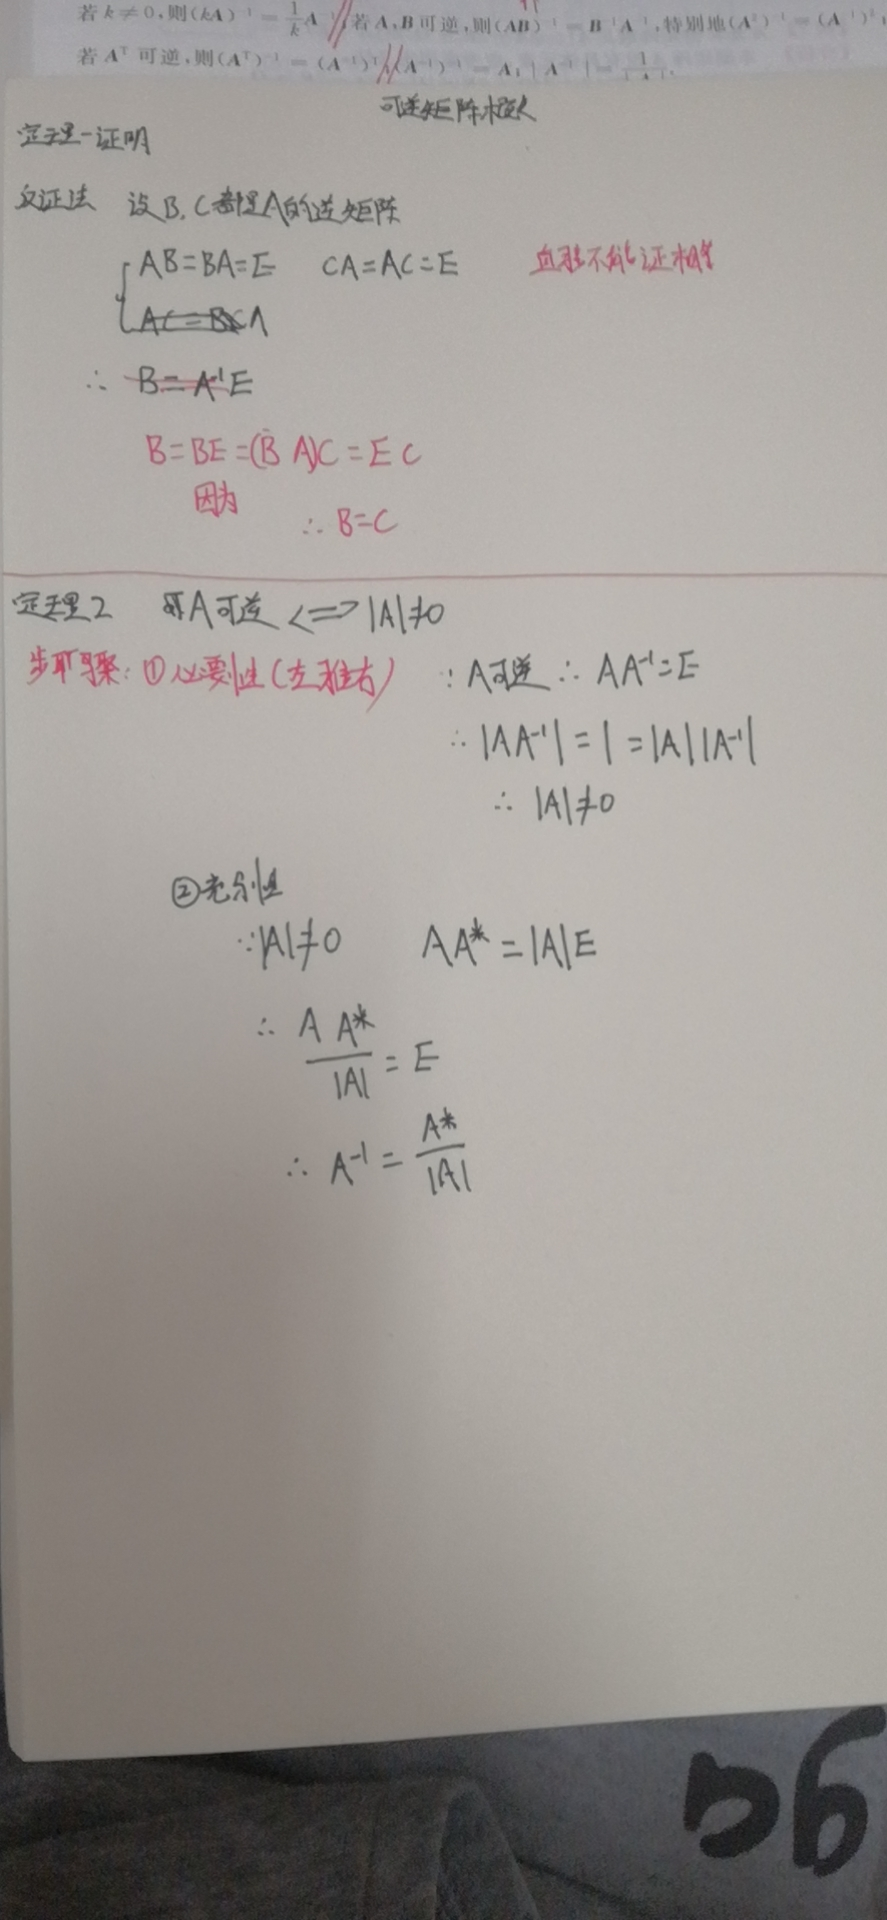 若 k ≠ 0,则(kA)⁻¹ = 1/k A⁻¹;若 A,B 可逆,则(AB)⁻¹ = B⁻¹A⁻¹,特别地(A²)⁻¹ = (A⁻¹)²
若 Aᵀ 可逆,则(Aᵀ)⁻¹ = (A⁻¹)ᵀ;(A⁻¹)⁻¹ = A;|A⁻¹| = 1/|A|.
可逆矩阵
定理一证明
反证法 设B,C都是A的逆矩阵
AB=BA=E CA=AC=E 不能证相等
AC=BCA
∴ B=A⁻¹E
B=BE=(BA)C=EC
因为
∴ B=C
定理2 A可逆 <=> |A|≠0
步骤: ①必要性(左推右) ∵A可逆 ∴ AA⁻¹=E
∴ |AA⁻¹|=1=|A||A⁻¹|
∴ |A|≠0
②充分性
∵|A|≠0 AA*=|A|E
∴ A A*/|A| = E
∴ A⁻¹ = A*/|A|